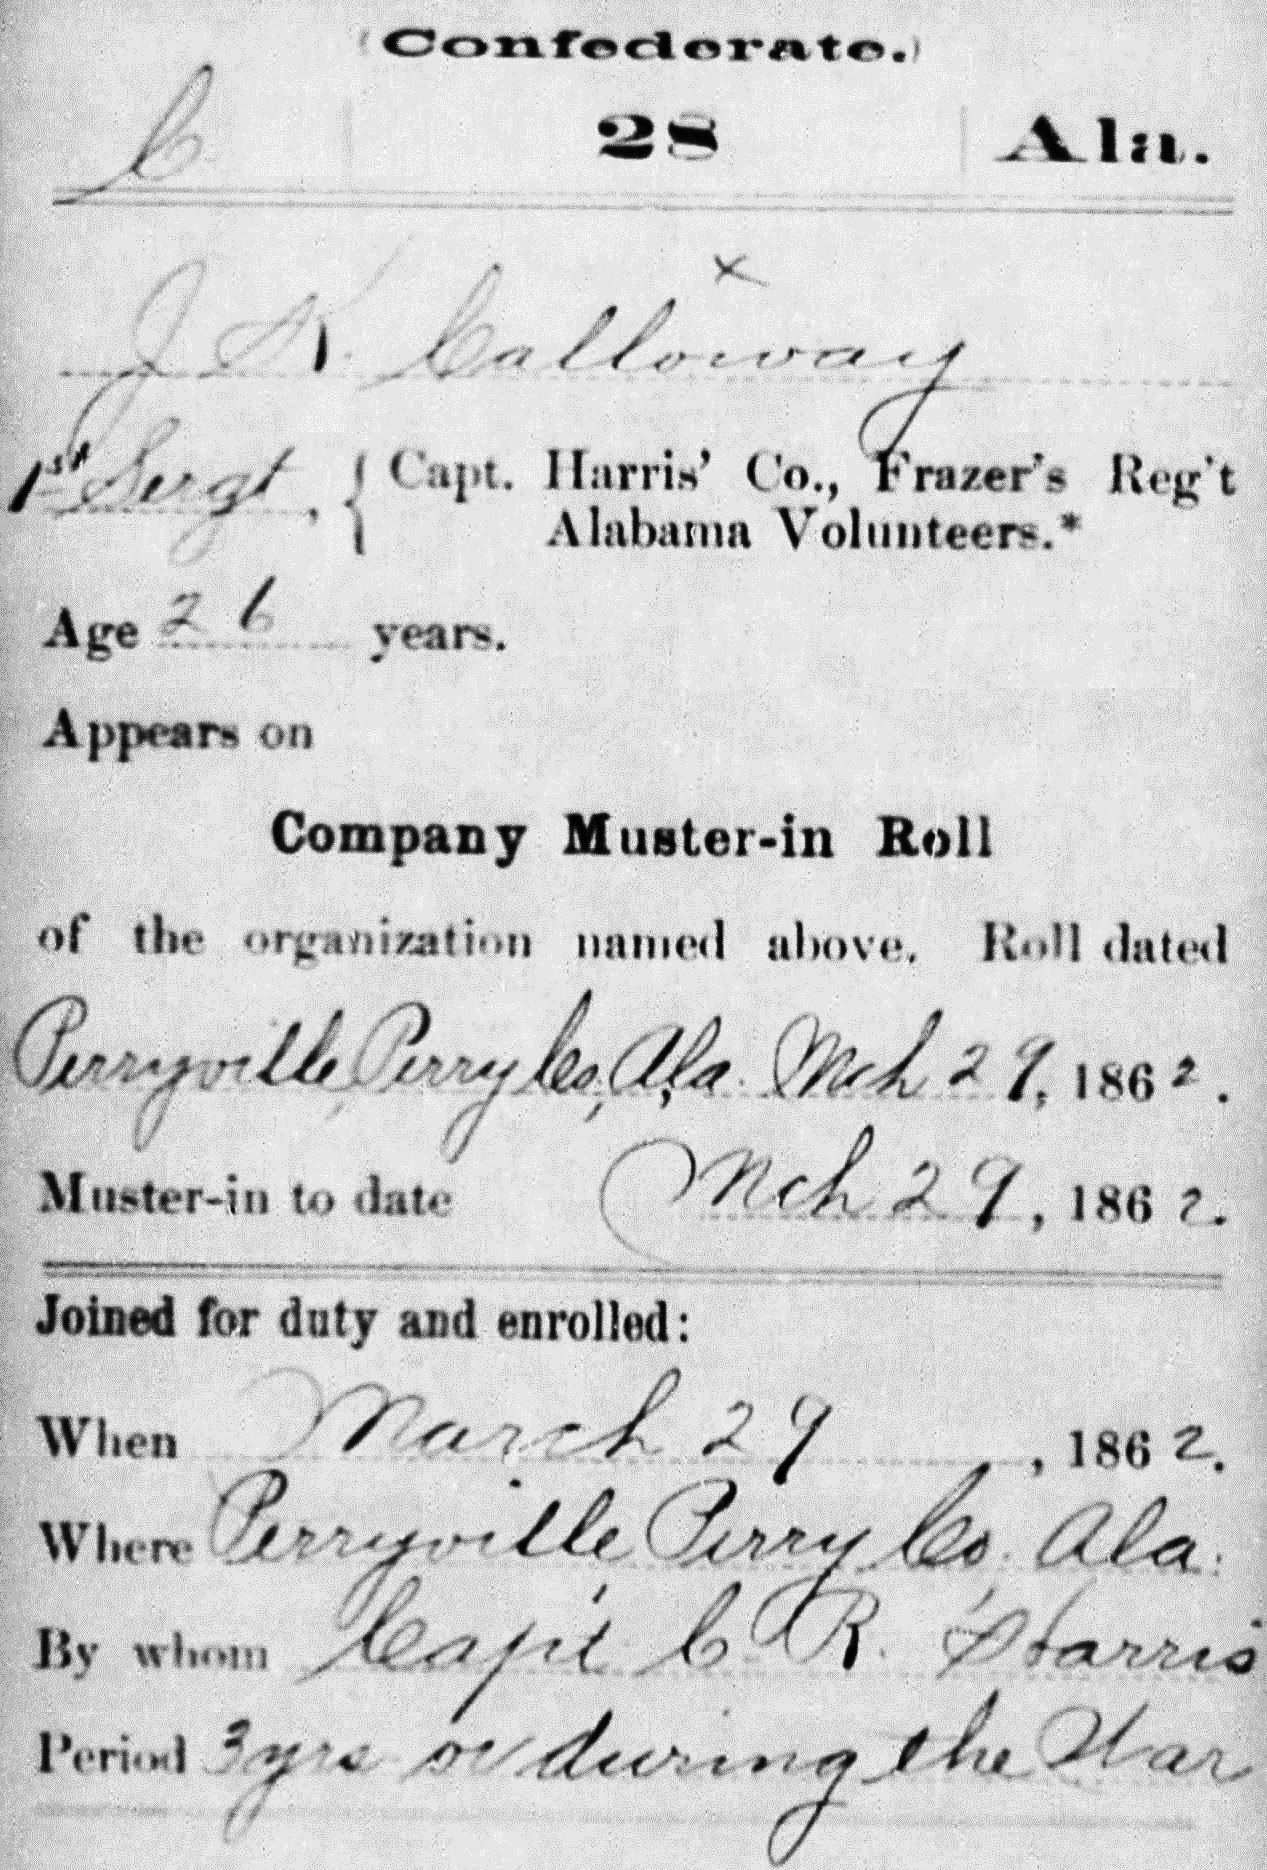 (Confederate.)
C 28 Ala.
x
J K. Calloway
1st Sergt, { Capt. Harris' Co., Frazer's Reg't
Alabama Volunteers.*
Age 26 years.
Appears on
Company Muster-in Roll
of the organization named above. Roll dated
Perryville, Perry Co, Ala. Mch 29, 1862.
Muster-in to date Mch 29, 1862.
Joined for duty and enrolled:
When March 29, 1862.
Where Perryville, Perry Co. Ala.
By whom Capt. C R. Harris
Period 3 yrs or during the War